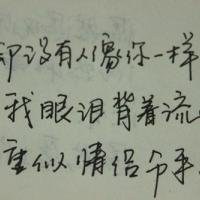 却没有人像你一样
我眼泪背着流
重似情侣分手